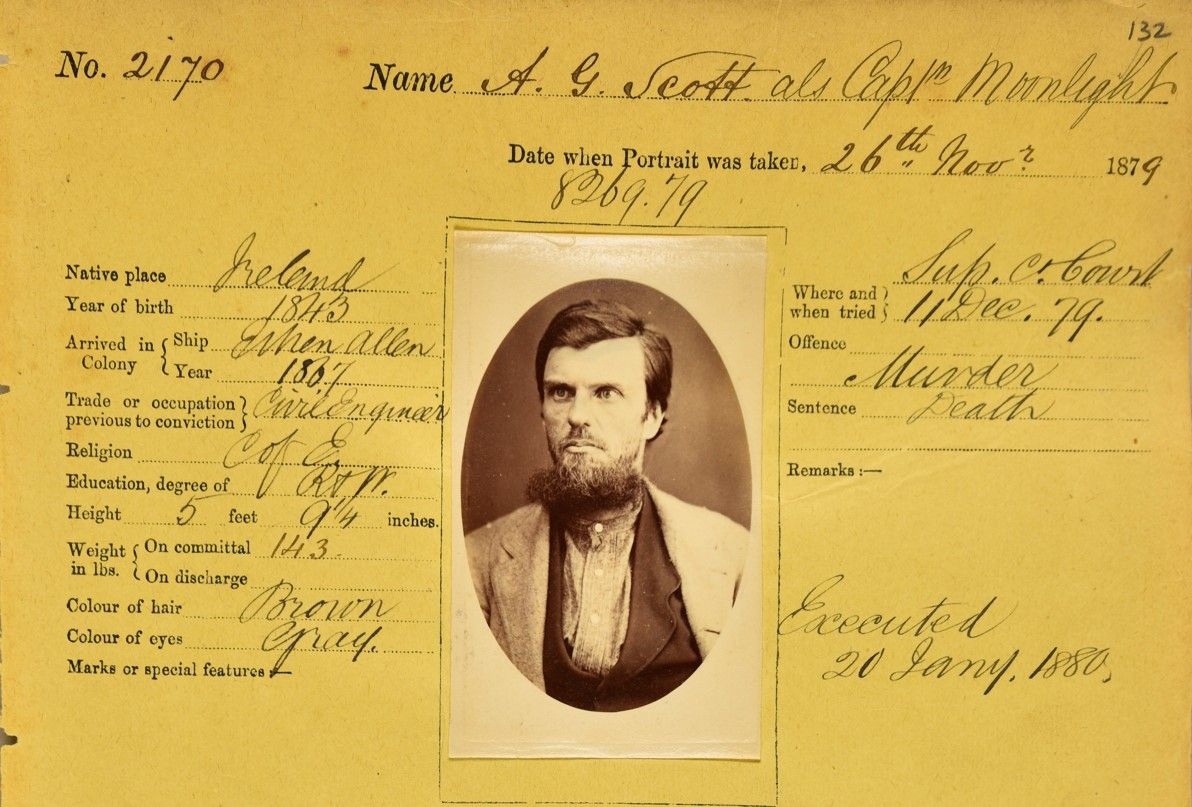 132
No. 2170 Name A. G. Scott als Captn Moonlight
Date when Portrait was taken, 26th Novr 1879
8269.79
Native place Ireland
Year of birth 1843
Arrived in Colony { Ship Ethen Allen
Year 1867
Trade or occupation previous to conviction } Civil Engineer
Religion C of E.
Education, degree of R & W.
Height 5 feet 9 1/4 inches.
Weight in lbs. { On committal 143.
On discharge
Colour of hair Brown
Colour of eyes Gray.
Marks or special features:—
Sup. Ct Court
Where and when tried } 11 Dec. 79.
Offence
Murder
Sentence Death
Remarks:—
Executed
20 Jany. 1880.